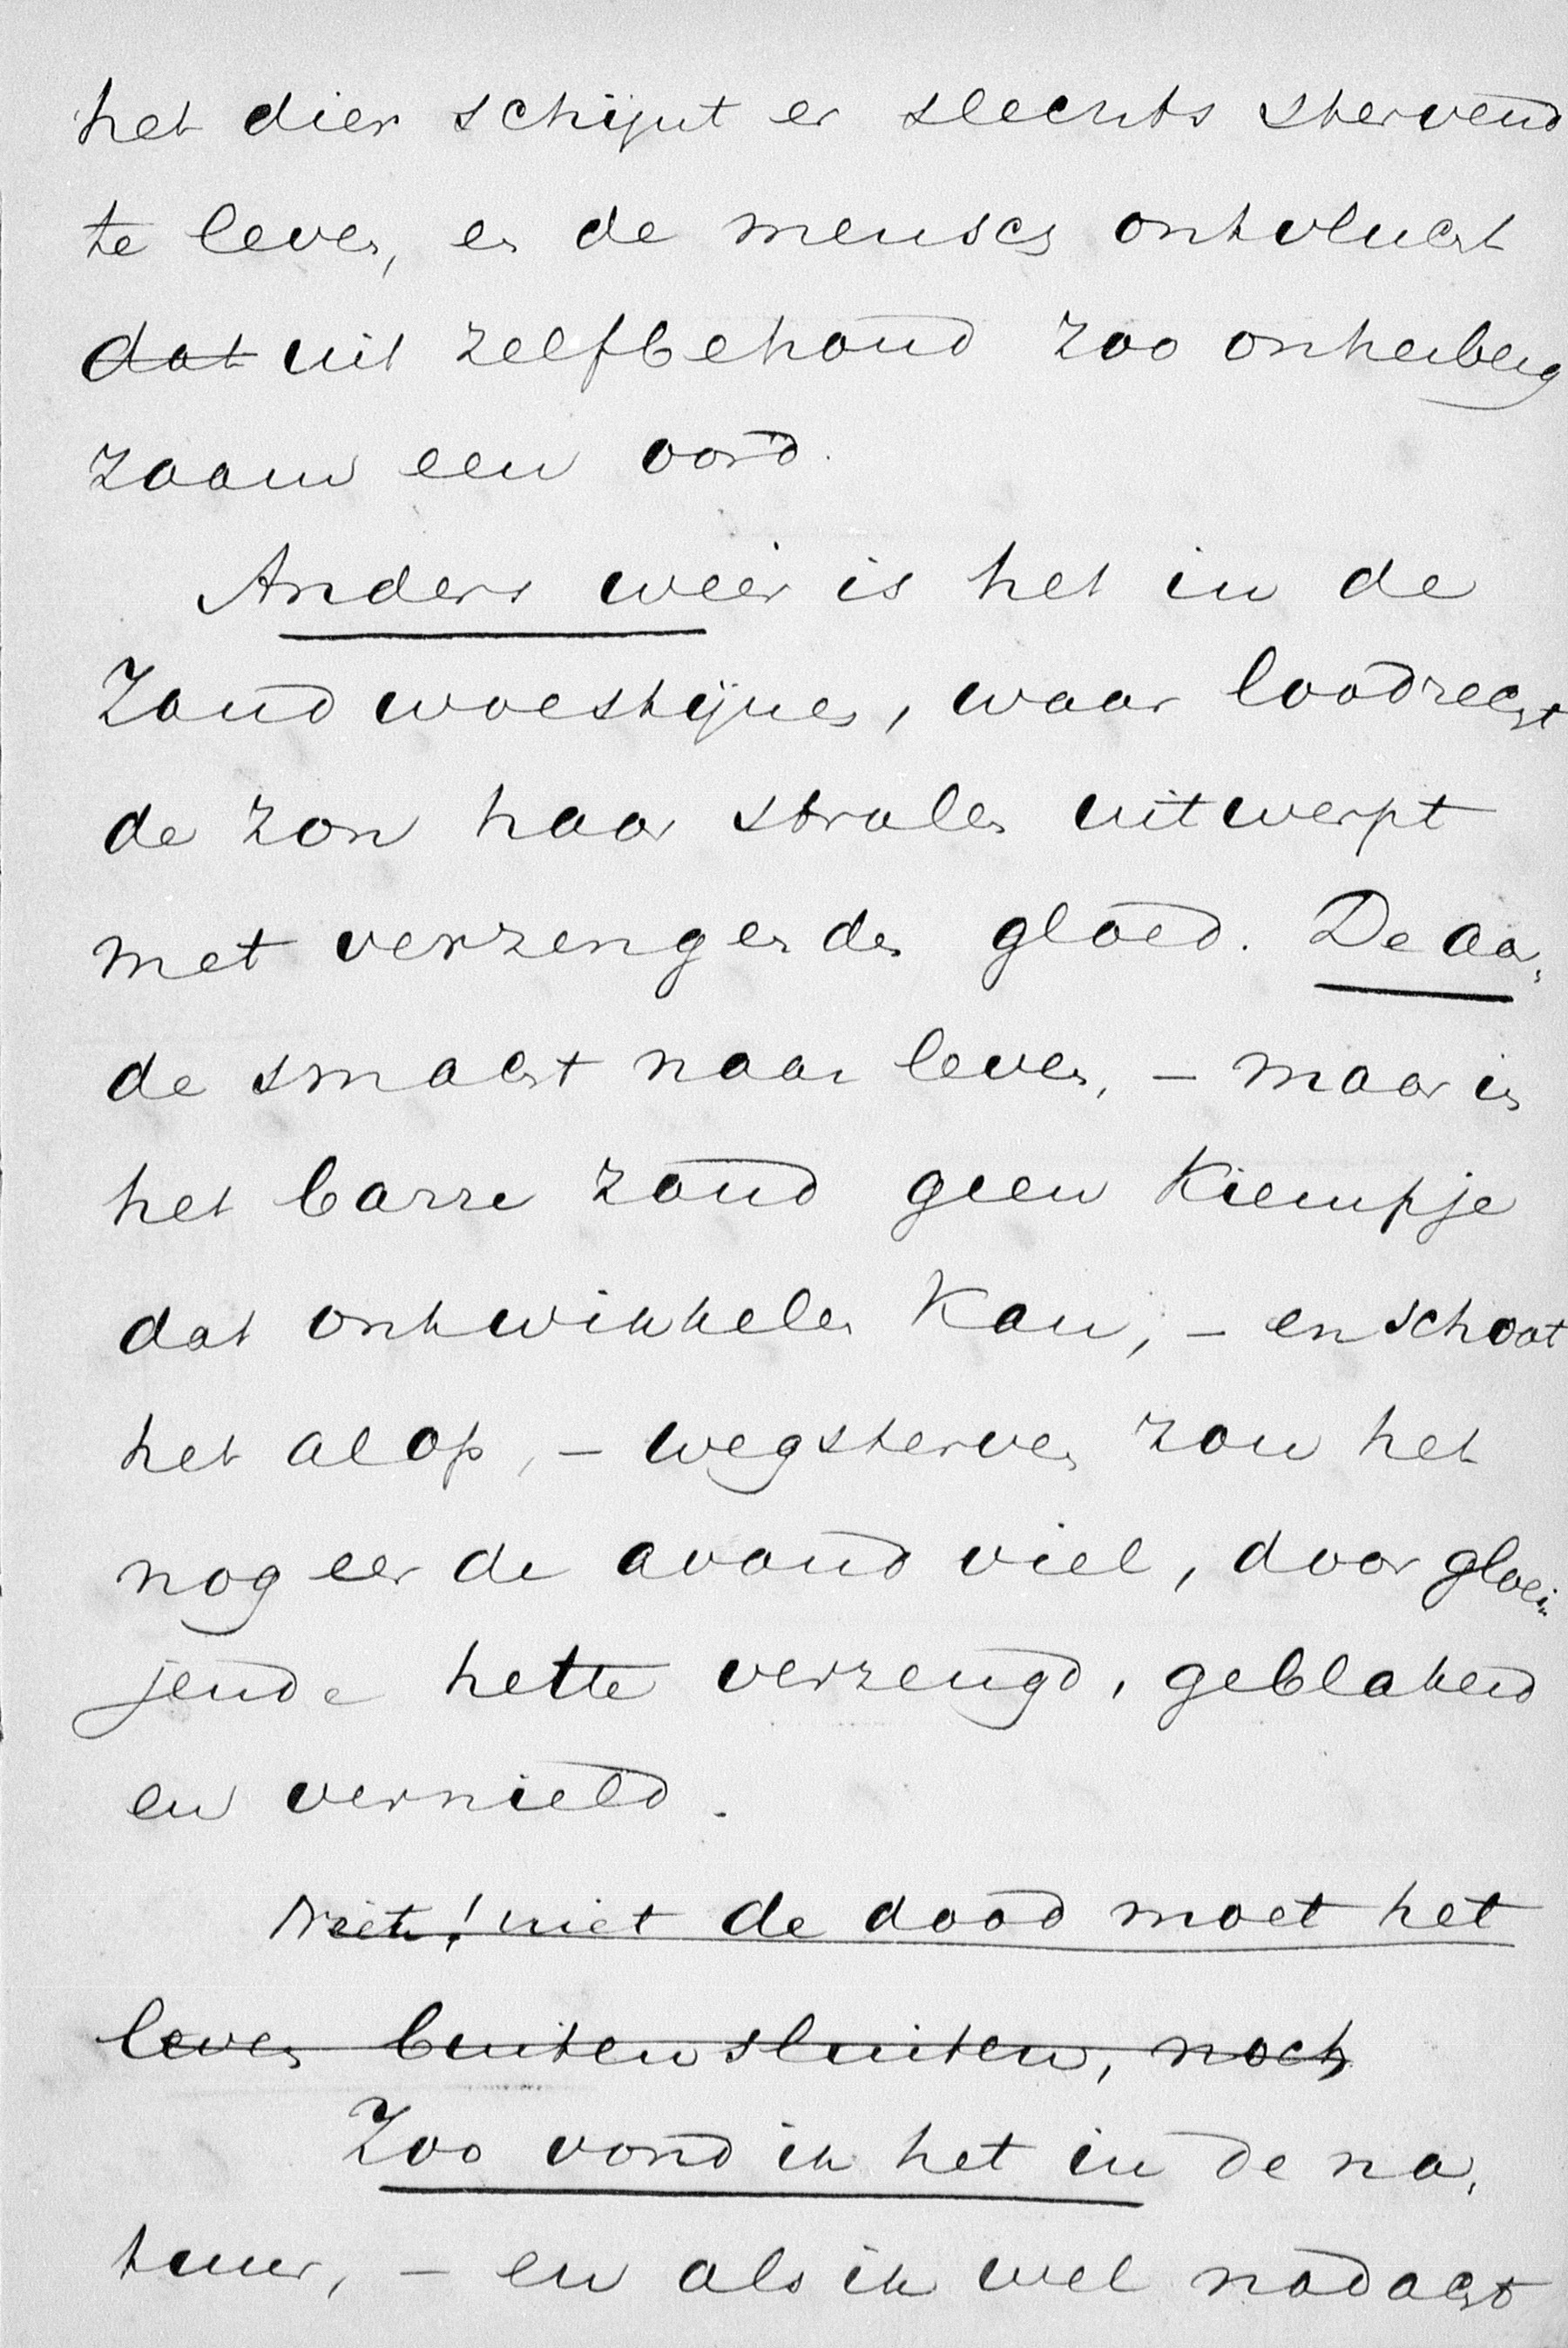 het dier schijnt er slechts stervend
te leven, en de mensch ontvlucht
dat uit zelfbehoud zoo onherberg
zaam een oord.
Anders weêr is het in de
Zandwoestijnen, waar loodrecht
de zon haar stralen uitwerpt
met verzengenden gloed. De aar,
de smacht naar leven, – maar in
het barre zand geen kiempje
dat ontwikkelen kan; – en schoot
het al op, – wegsterven zou het
nog eer de avond viel, door gloei-
jende hette verzengd, geblakerd
en vernield.
Niet! niet de dood moet het
leven buitensluiten, noch
Zoo vond ik het in de na,
tuur, – en als ik wel nadacht